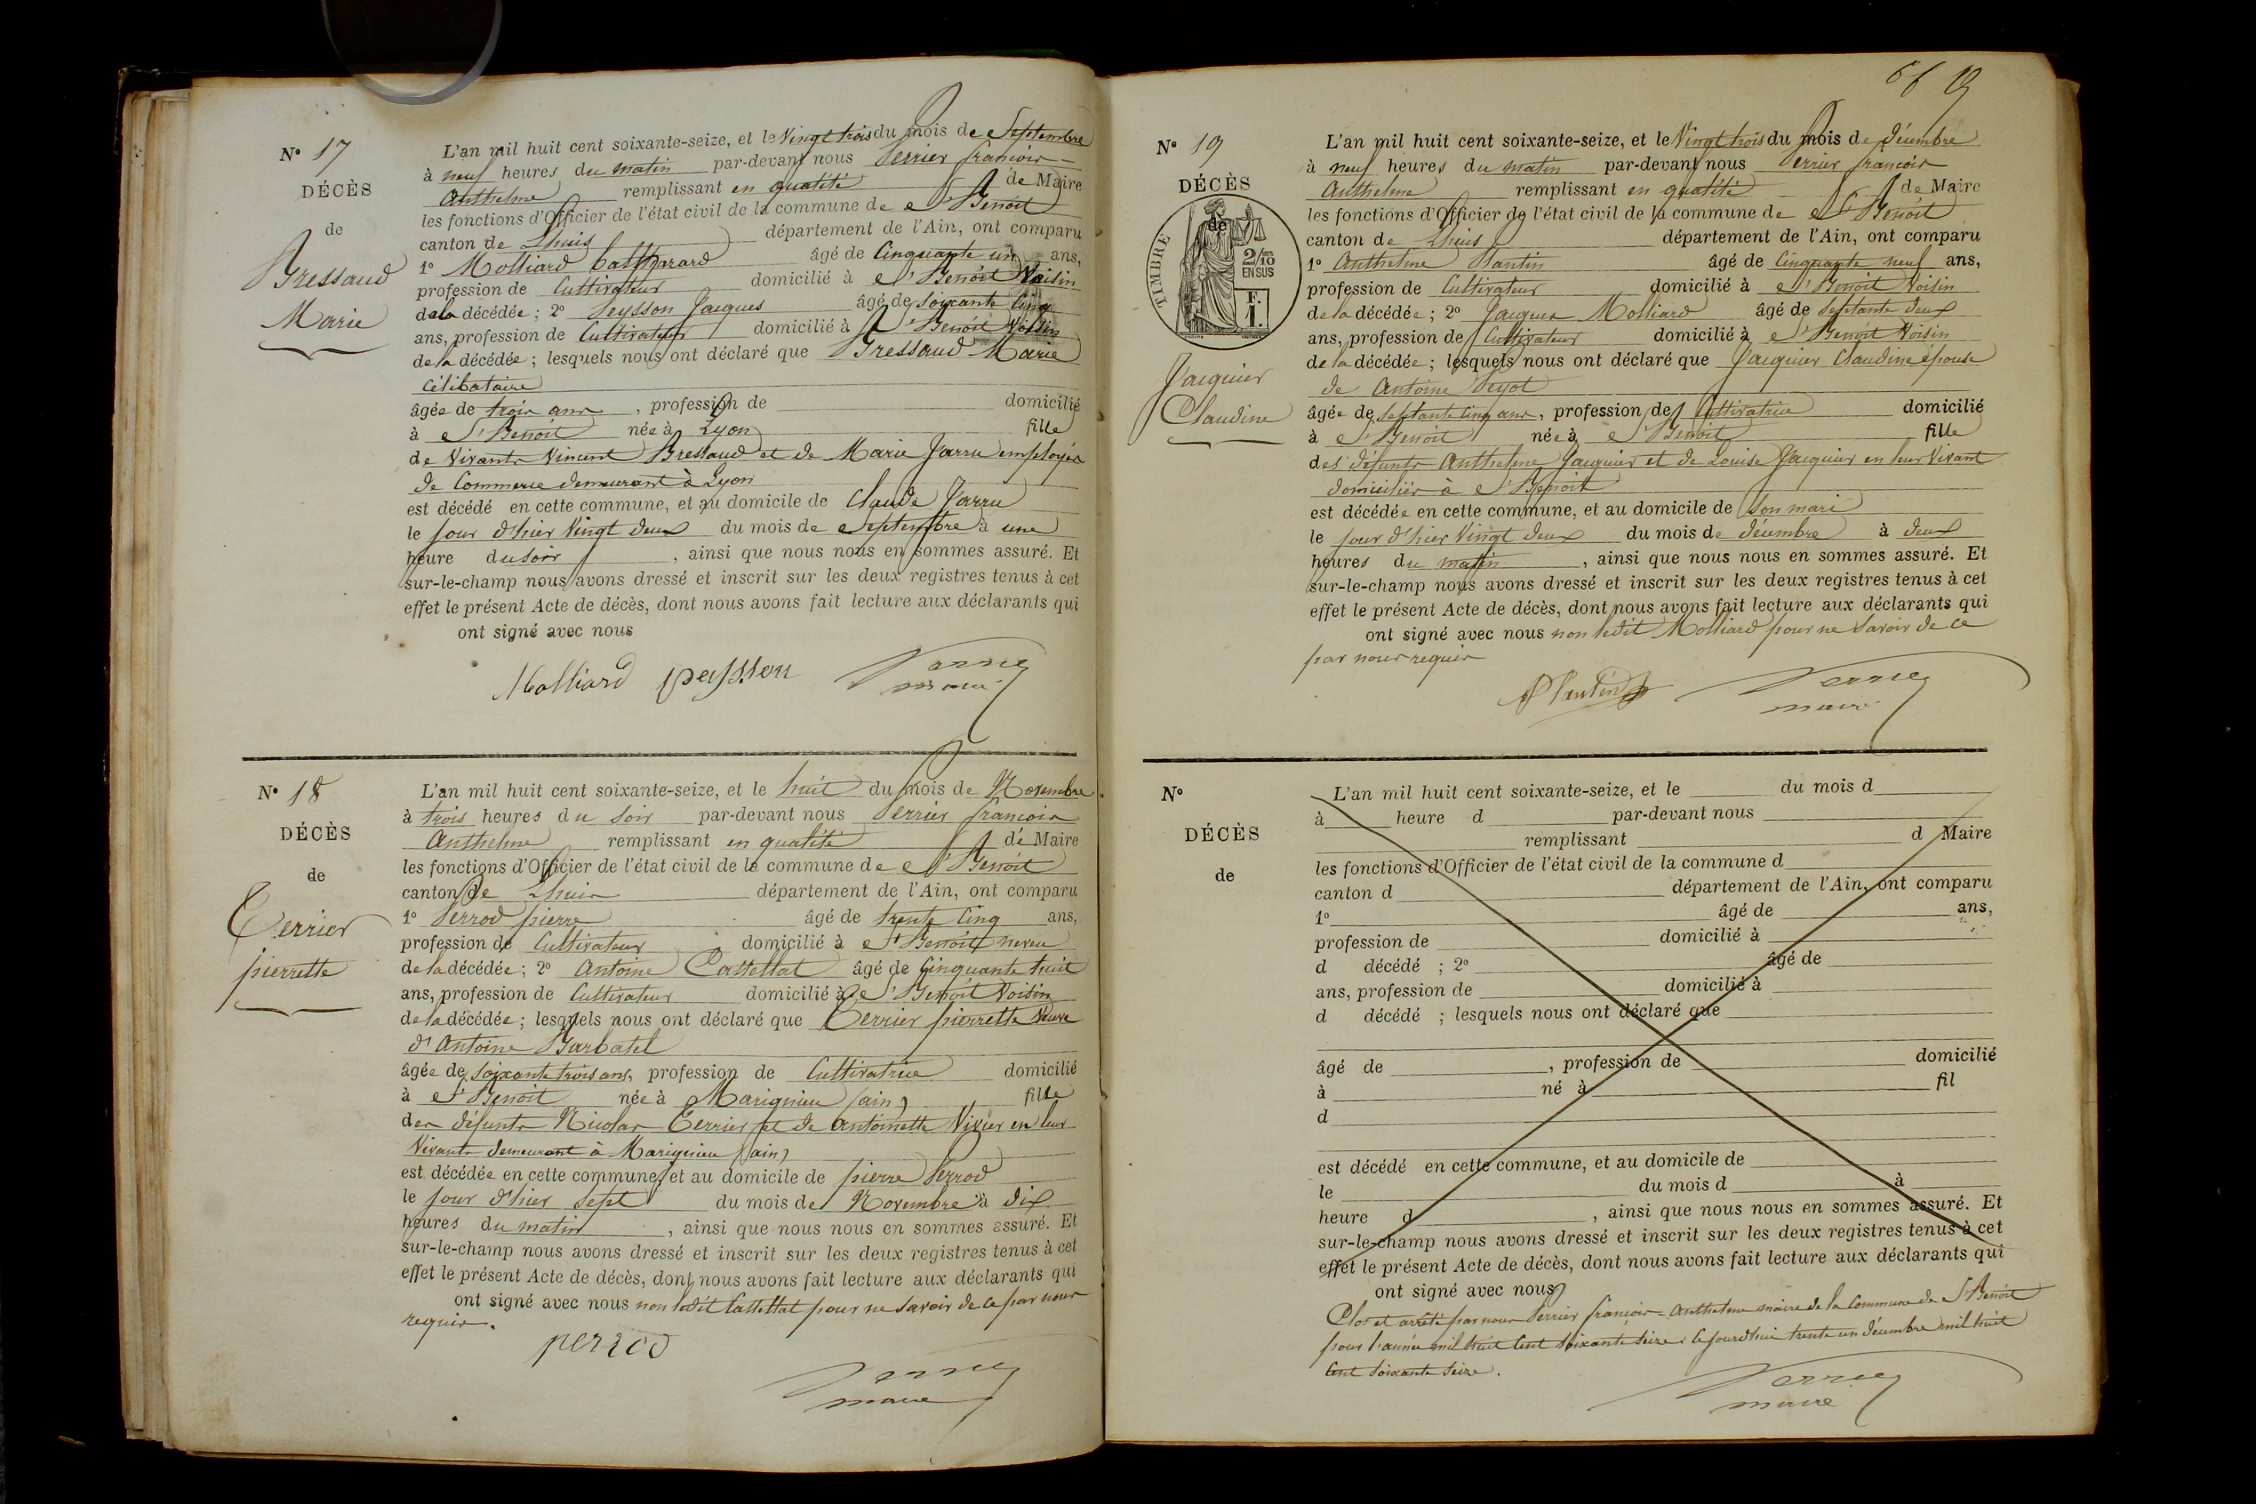 Nº 17
DÉCÈS
de
Bressaud
Marie
L'an mil huit cent soixante-seize, et le Vingt trois du mois de Septembre
à neuf heures du matin par-devant nous Perrier françois
Anthelme remplissant en qualité de Maire
les fonctions d'Officier de l'état civil de la commune de St Benoit
canton de Lhuis département de l'Ain, ont comparu
1º Molliard Balthazard âgé de Cinquante un ans,
profession de Cultivateur domicilié à St Benoit Voisin
de la décédée ; 2º Peysson Jacques âgé de Soixante Cinq
ans, profession de Cultivateur domicilié à St Benoit Voisin
de la décédée ; lesquels nous ont déclaré que Bressaud Marie
Célibataire
âgée de trois ans , profession de domicilié
à St Benoit née à Lyon fille
de Vivants Vincent Bressaud et de Marie Jarru employés
de Commerce demeurant à Lyon
est décédé en cette commune, et au domicile de Claude Jarru
le jour d'hier Vingt deux du mois de Septembre à une
heure du soir , ainsi que nous nous en sommes assuré. Et
sur-le-champ nous avons dressé et inscrit sur les deux registres tenus à cet
effet le présent Acte de décès, dont nous avons fait lecture aux déclarants qui
ont signé avec nous
Molliard peysson Perrier
maire
Nº 18
DÉCÈS
de
Terrier
pierrette
L'an mil huit cent soixante-seize, et le huit du mois de Novembre
à trois heures du soir par-devant nous Perrier françois
Anthelme remplissant en qualité de Maire
les fonctions d'Officier de l'état civil de la commune de St Benoit
canton de Lhuis département de l'Ain, ont comparu
1º Perrod pierre âgé de trente Cinq ans,
profession de Cultivateur domicilié à St Benoit neveu
de la décédée ; 2º Antoine Castellat âgé de Cinquante huit
ans, profession de Cultivateur domicilié à St Benoit Voisin
de la décédée ; lesquels nous ont déclaré que Terrier pierrette Veuve
d'Antoine Barbatel
âgée de Soixante trois ans, profession de Cultivatrice domicilié
à St Benoit née à Marignieu (ain) fille
des défunts Nicolas Terrier et de Antoinette Vivier en leur
Vivants demeurant à Marignieu (ain)
est décédée en cette commune, et au domicile de pierre Perrod
le jour d'hier Sept du mois de Novembre à dix
heures du matin , ainsi que nous nous en sommes assuré. Et
sur-le-champ nous avons dressé et inscrit sur les deux registres tenus à cet
effet le présent Acte de décès, dont nous avons fait lecture aux déclarants qui
ont signé avec nous non ledit Castellat pour ne savoir de ce par nous
requis.
perrod
Perrier
maire
19
Nº 19
DÉCÈS
de
TIMBRE
2/10
EN SUS
F.
1.
Jacquier
Claudine
L'an mil huit cent soixante-seize, et le Vingt trois du mois de décembre
à neuf heures du matin par-devant nous Perrier françois
Anthelme remplissant en qualité de Maire
les fonctions d'Officier de l'état civil de la commune de St Benoit
canton de Lhuis département de l'Ain, ont comparu
1º Anthelme Plantin âgé de Cinquante neuf ans,
profession de Cultivateur domicilié à St Benoit Voisin
de la décédée ; 2º Jacques Molliard âgé de Septante deux
ans, profession de Cultivateur domicilié à St Benoit Voisin
de la décédée ; lesquels nous ont déclaré que Jacquier Claudine épouse
de Antoine Peyot
âgée de Septante Cinq ans , profession de Cultivatrice domicilié
à St Benoit née à St Benoit fille
des défunts Anthelme Jacquier et de Louise Jacquier en leur Vivant
domiciliés à St Benoit
est décédée en cette commune, et au domicile de Son mari
le jour d'hier Vingt deux du mois de décembre à deux
heures du matin , ainsi que nous nous en sommes assuré. Et
sur-le-champ nous avons dressé et inscrit sur les deux registres tenus à cet
effet le présent Acte de décès, dont nous avons fait lecture aux déclarants qui
ont signé avec nous non ledit Molliard pour ne Savoir de ce
par nous requis
Plantin Perrier
maire
Nº
DÉCÈS
de
L'an mil huit cent soixante-seize, et le du mois d
à heure d par-devant nous
remplissant d Maire
les fonctions d'Officier de l'état civil de la commune d
canton d département de l'Ain, ont comparu
1º âgé de ans,
profession de domicilié à
d décédé ; 2º âgé de
ans, profession de domicilié à
d décédé ; lesquels nous ont déclaré que
âgé de , profession de domicilié
à né à fil
d
est décédé en cette commune, et au domicile de
le du mois d à
heure d , ainsi que nous nous en sommes assuré. Et
sur-le-champ nous avons dressé et inscrit sur les deux registres tenus à cet
effet le présent Acte de décès, dont nous avons fait lecture aux déclarants qui
ont signé avec nous
Clos et arrêté par nous Perrier françois-Anthelme maire de la Commune de St Benoit
pour l'année mil huit Cent Soixante Seize. Ce jourd'hui trente un décembre mil huit
Cent Soixante Seize.
Perrier
maire